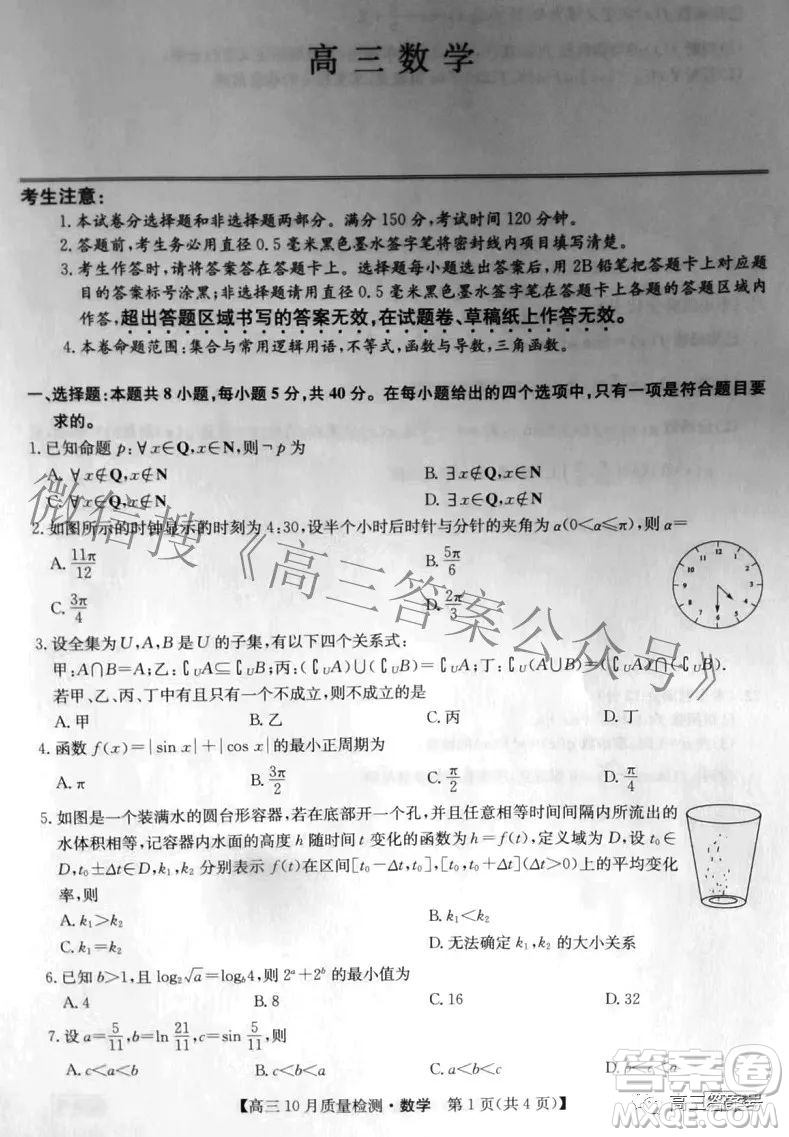 高三数学
考生注意:
1.本试卷分选择题和非选择题两部分。满分150分,考试时间120分钟。
2.答题前,考生务必用直径0.5毫米黑色墨水签字笔将密封线内项目填写清楚。
3.考生作答时,请将答案答在答题卡上。选择题每小题选出答案后,用2B铅笔把答题卡上对应题
目的答案标号涂黑;非选择题请用直径0.5毫米黑色墨水签字笔在答题卡上各题的答题区域内
作答,超出答题区域书写的答案无效,在试题卷、草稿纸上作答无效。
4.本卷命题范围:集合与常用逻辑用语,不等式,函数与导数,三角函数。
一、选择题:本题共8小题,每小题5分,共40分。在每小题给出的四个选项中,只有一项是符合题目要
求的。
1.已知命题p:∀x∈Q,x∈N,则¬p为
A.∀x∉Q,x∉N B.∃x∉Q,x∉N
C.∀x∈Q,x∉N D.∃x∈Q,x∉N
2.如图所示的时钟显示的时刻为4:30,设半个小时后时针与分针的夹角为α(0<α≤π),则α=
A.11π/12 B.5π/6
C.3π/4 D.2π/3
3.设全集为U,A,B是U的子集,有以下四个关系式:
甲:A∩B=A;乙:∁UA⊆∁UB;丙:(∁UA)∪(∁UB)=∁UA;丁:∁U(A∪B)=(∁UA)∩(∁UB).
若甲、乙、丙、丁中有且只有一个不成立,则不成立的是
A.甲 B.乙 C.丙 D.丁
4.函数f(x)=|sin x|+|cos x|的最小正周期为
A.π B.3π/2 C.π/2 D.π/4
5.如图是一个装满水的圆台形容器,若在底部开一个孔,并且任意相等时间间隔内所流出的
水体积相等,记容器内水面的高度h随时间t变化的函数为h=f(t),定义域为D,设t₀∈
D,t₀±Δt∈D,k₁,k₂分别表示f(t)在区间[t₀-Δt,t₀],[t₀,t₀+Δt](Δt>0)上的平均变化
率,则
A.k₁>k₂ B.k₁<k₂
C.k₁=k₂ D.无法确定k₁,k₂的大小关系
6.已知b>1,且log₂√a=log_b4,则2ᵃ+2ᵇ的最小值为
A.4 B.8 C.16 D.32
7.设a=5/11,b=ln 21/11,c=sin 5/11,则
A.c<a<b B.c<b<a C.a<b<c D.b<c<a
【高三10月质量检测·数学 第1页(共4页)】
微信搜《高三答案公众号》
答案圈
高三答案号
MXQE.COM